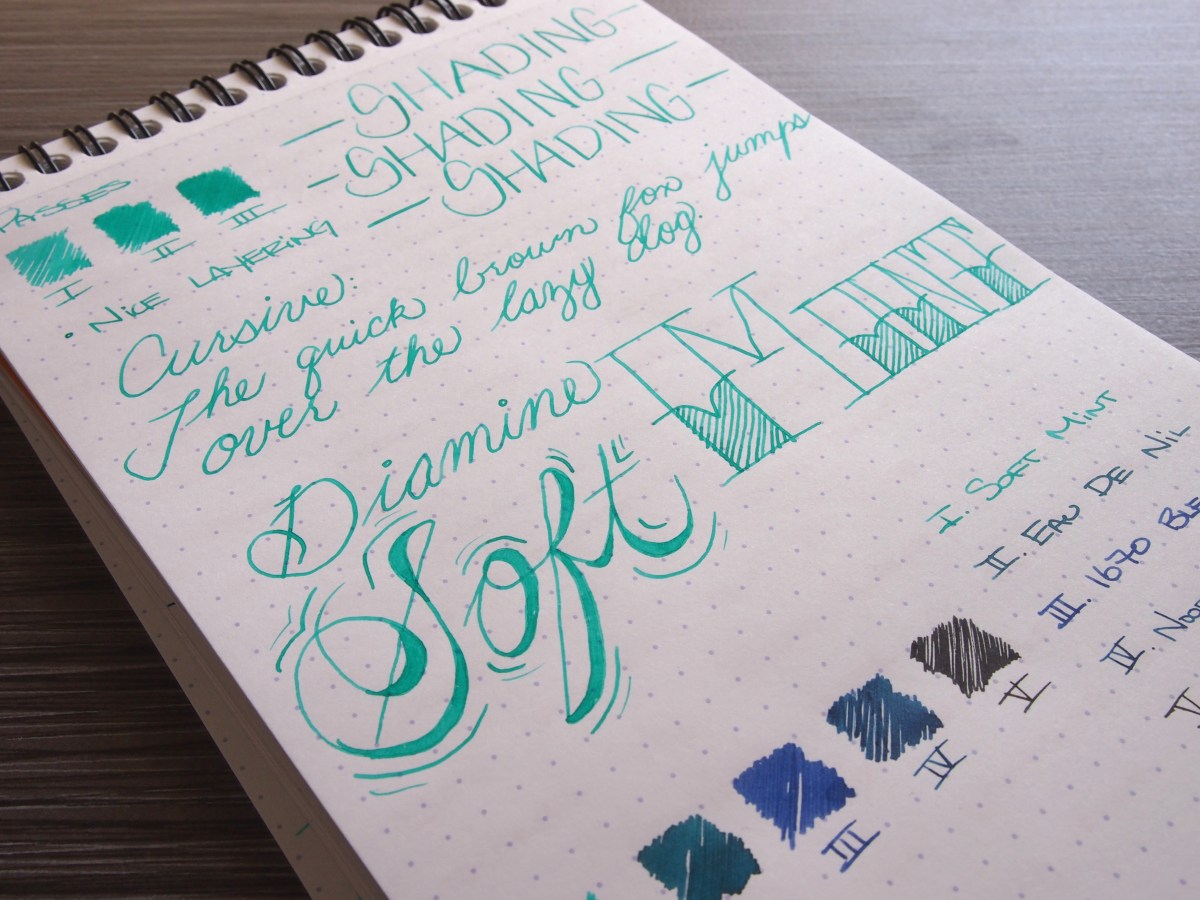 SHADING
SHADING
SHADING
PASSES
I II III
• NICE LAYERING
Cursive:
The quick brown fox jumps
over the lazy dog.
Diamine
Soft MINT
I. SOFT MINT
II. EAU DE NIL
III. 1670
IV.
V
III IV V